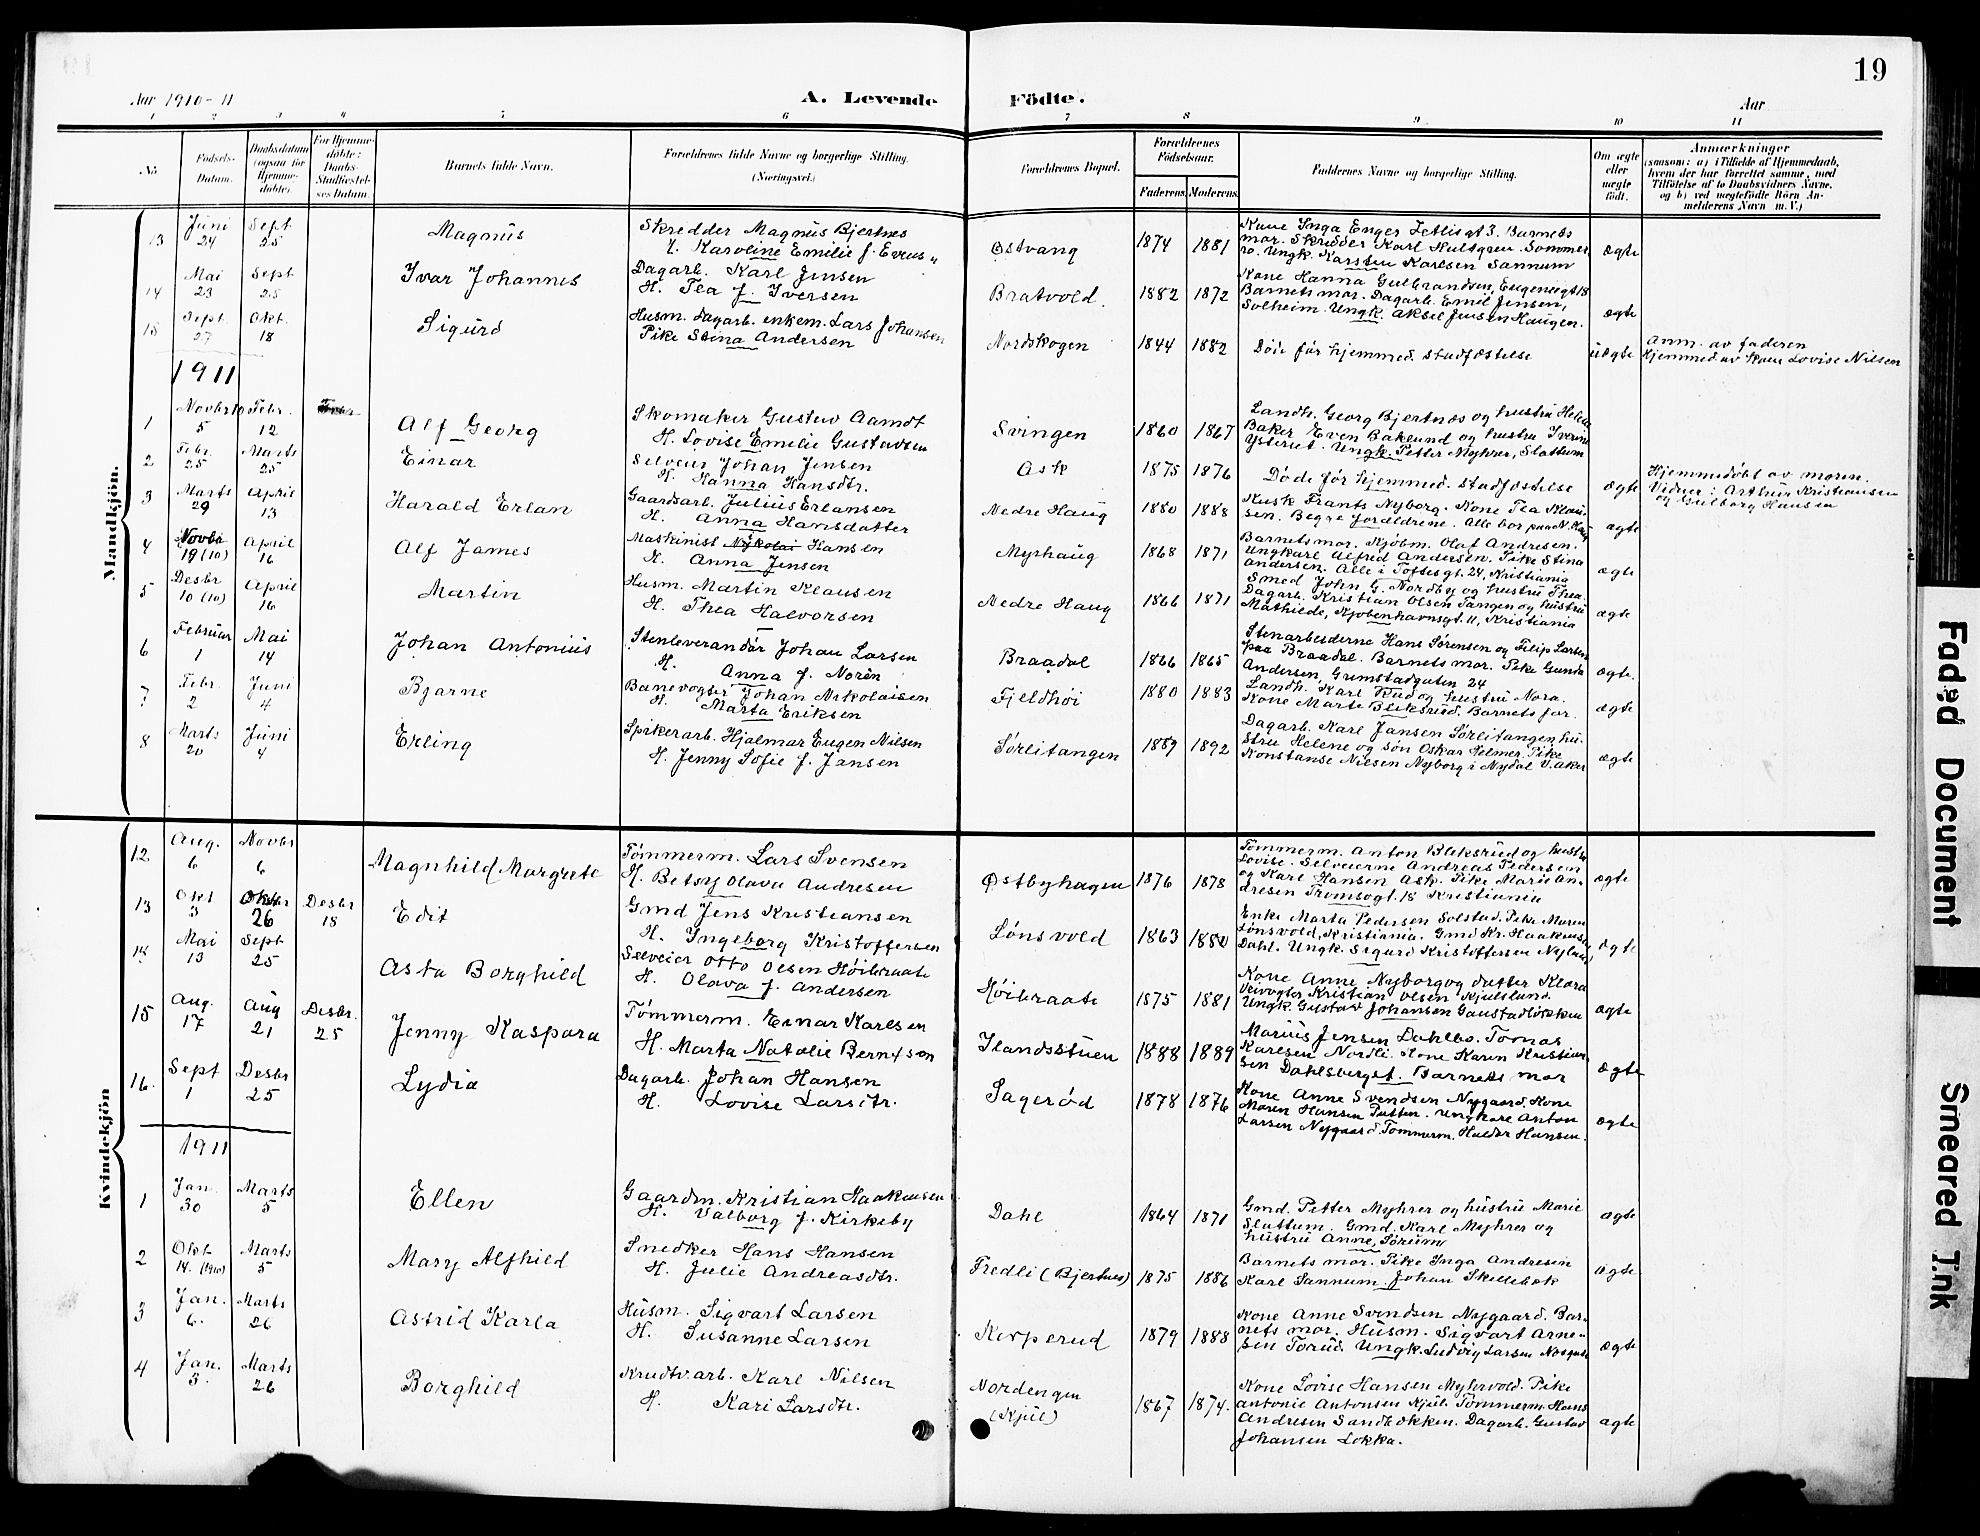 19
Aar 1910-11
A. Levende Födte.
Aar
1 2 3 4 5 6 7 8 9 10 11
No
Födsels-Datum.
Daabsdatum (ogsaa for Hjemme-döbte).
For Hjemme-döbte: Daabs-Stadfæstel-ses Datum
Barnets fulde Navn.
Forældrenes fulde Navne og borgerlige Stilling. (Næringsvei.)
Forældrenes Bopæl.
Forældrenes Födselsaar.
Faderens Moderens
Faddernes Navne og borgerlige Stilling.
Om ægte eller uægte födt.
Anmærkninger
(saasom: a) i Tilfælde af Hjemmedaab,
hvem der har forrettet samme, med
Tilföielse af to Daabsvidners Navne,
og b) ved uægtefödte Börn An-
melderens Navn m. V.)
Mandkjön.
13 Juni 24 Sept 25 Magnus
Skredder Magnus Bjertnes
H. Karoline Emilie f. Evens
Østvang 1874 1881
Kone Inga Enger Zetlisgt 3. Barnets
mor. Skredder Karl Hultgren. Sommer
ro. Ungk. Karsten Karlsen Sannum
ægte
14 Mai 23 Sept 25 Ivar Johannes
Dagarb. Karl Jensen
H. Tea f. Iversen
Bratvold. 1882 1872
Kone Hanna Gulbrandsen, Eugeniegt 18
Barnets mor. Dagarb. Emil Jensen,
Solheim. Ungk. Aksel Jensen Haugen.
ægte
15 Sept. 27 Okt. 18 Sigurd
Husm. dagarb. enkem. Lars Johansen
Pike Stina Andersen
Nordskogen 1844 1882
Døde før hjemmed. stadfæstelse
uægte
Anm. av faderen
Hjemmed av kone Lovise Nilsen
1911
1 Novbr 10 5 Febr. 12 Alf Georg
Skomaker Gustav Aamdt
H. Lovise Emelie Gustavsen
Svingen 1860 1867
Landh. Georg Bjertnæs og hustru Helene
Baker Even Baklund og hustru Iverine
Ysterut. Ungk. Petter Myhrer, Slattum
2 Febr. 25 Marts 25 Einar
Selveier Johan Jensen
H. Hanna Hansdtr.
Ask 1875 1876
Døde før hjemmed. stadfæstelse
ægte
Hjemmedøbt av moren.
Vidner: Arthur Kristiansen
og Gulborg Hansen
3 Marts 29 April 13 Harald Erlan
Gaardsarb. Julius Erlansen
H. Anna Hansdatter
Nedre Haug 1880 1888
Kusk Frants Nyborg. Kone Tea Klau-
sen. Begge forældrene. Alle bor paa N. Haug
ægte
4 Novbr 19 (10) April 16 Alf James
Maskinist Nikolai Hansen
H. Anna Jensen
Myrhaug 1868 1871
Barnets mor. Kjøbm. Olaf Andresen.
Ungkarl Alfred Andersen. Pike Stina
Andersen. Alle i Toftesgt. 24, Kristiania
ægte
5 Desbr 10 (10) April 16 Martin
Husm. Martin Klausen
H. Thea Halvorsen
Nedre Haug 1866 1871
Smed John G. Nordby og hustru Thea.
Dagarb. Kristian Olsen Tangen og hustru
Mathilde, Kjøbenhavnsgt. 11, Kristiania
ægte
6 Februar 1 Mai 14 Johan Antonius
Stenleverandør Johan Larsen
H. Anna f. Norén
Braadal 1866 1865
Stenarbeiderne Hans Sørensen og Filip Larsen
paa Braadal. Barnets mor. Pike Gunda
Andersen, Grimstadgaten 24
ægte.
7 Febr. 2 Juni 4 Bjarne
Banevogter Johan Nikolaisen
H. Marta Eriksen
Fjeldhøi 1880 1883
Landh. Karl Rud og hustru Nora.
Kone Marte Bliksrud. Barnets far.
ægte
8 Marts 20 Juni 4 Erling
Spikerarb. Hjalmar Eugen Nilsen
H. Jenny Sofie f. Jansen
Sørlitangen 1889 1892
Dagarb. Karl Jansen Sørlitangen, hu-
stru Helene og søn Oskar Helmer. Pike
Konstanse Nilsen Nyborg i Nydal V. Aker
ægte
Kvindekjön
12 Aug. 6 Novbr 6 Magnhild Margrete
Tømmerm. Lars Svensen
H. Betsy Olava Andresen
Østbyhagen 1876 1878
Tømmerm. Anton Bliksrud og hustru
Lovise. Selveierne Andreas Pedersen
og Karl Hansen Ask. Pike Marie An-
dresen Tromsøgt. 18 Kristiania
ægte
13 Okt 3 26 Desbr 18 Edit
Gmd Jens Kristiansen
H. Ingeborg Kristoffersen
Lønsvold 1863 1880
Enke Marta Pedersen Solstad. Pike Maren
Lønsvold, Kristiania. Gmd Kr. Haakensen
Dahl. Ungk. Sigurd Kristoffersen Nyland
ægte
14 Mai 13 Sept 25 Asta Borghild
Selveier Otto Olsen Høibraate
H. Olava f. Andersen
Høibraate 1875 1881
Kone Anne Nyborg og datter Klara
Veivogter Kristian Olsen Kjulslund
Ungk. Gustav Johansen Gaustadløkken
ægte
15 Aug. 17 Aug 21 Desbr. 25 Jenny Kaspara
Tømmerm. Einar Karlsen
H. Marta Natalie Berntsen
Ilandsstuen 1888 1889
Marius Jensen Dahlbo. Tomas
Karlsen Nordli. Kone Karen Kristian
sen Dahlsbergst. Barnets mor
ægte
16. Sept 1 Desbr 25 Lydia
Dagarb. Johan Hansen
H. Lovise Larsdtr.
Sagerød 1878 1876
Kone Anne Svendsen Nygaard. Kone
Maren Hansen Putten. Ungkarl Anton
Larsen Nygaard. Tømmerm. Haldor Hansen.
ægte
1911
1 Jan. 30 Marts 5 Ellen
Gaardm. Kristian Haakensen
H. Valborg f. Kirkeby
Dahl 1864 1871
Gmd. Petter Myhrer og hustru Marie
Slattum. Gmd. Karl Myhrer og
hustru Anne, Sørum
ægte
2 Okt 14. (1910) Marts 5 Mary Alfhild
Snedker Hans Hansen
H. Julie Andreasdtr.
Fredli (Bjertnes) 1875 1886
Barnets mor. Pike Inga Andresen
Karl Sannum. Johan Skillebæk
ægte
3 Jan. 6. Marts 26 Astrid Karla
Husm. Sigvart Larsen
H. Susanne Larsen
Korperud 1879 1888
Kone Anne Svendsen Nygaard. Bar-
nets mor. Husm. Sigvart Arne-
sen Torud. Ungk. Ludvig Larsen
ægte
4 Jan. 3. Marts 26 Borghild
Krudtv. arb. Karl Nilsen
H. Kari Larsdtr.
Nordengen (Kjul) 1867 1874.
Kone Lovise Hansen Myhrvold. Pike
Antonie Antonsen Kjul. Tømmerm. Hans
Andresen Sandbækken. Dagarb. Gustav
Johansen Løkka.
ægte
Faded Document
Smeared Ink